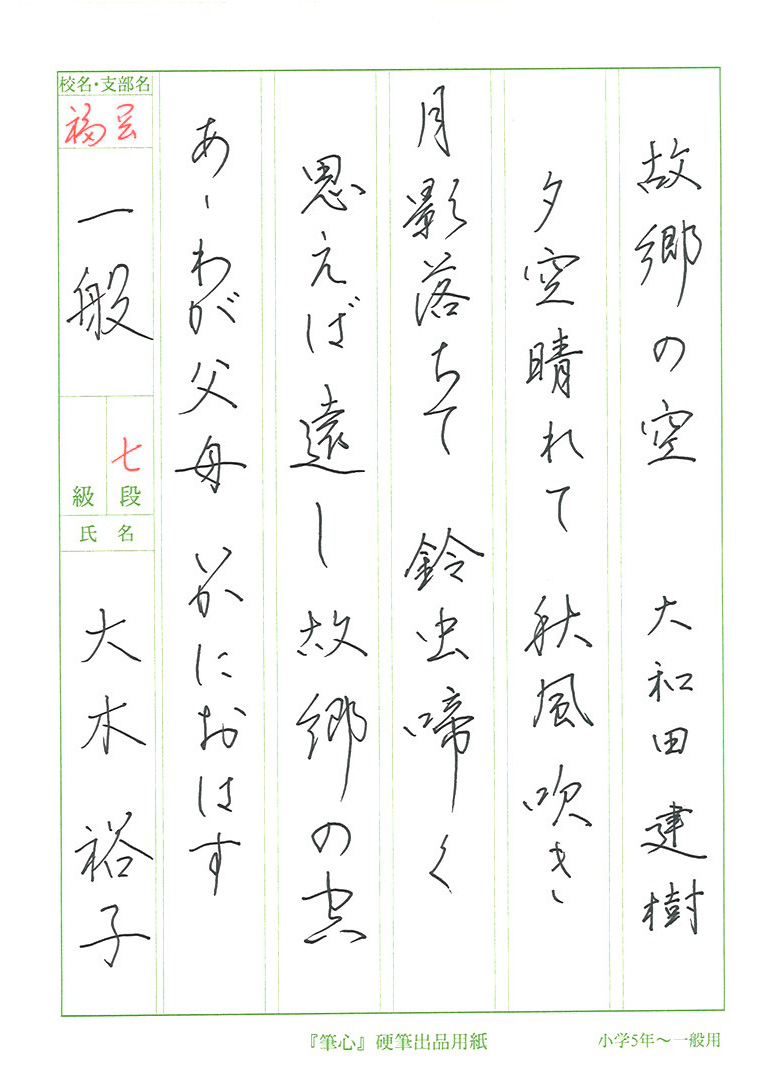 故郷の空 大和田建樹
夕空晴れて 秋風吹き
月影落ちて 鈴虫啼く
思えば遠し故郷の空
あゝわが父母 いかにおはす
校名・支部名
福岡
一般
七段
級
氏名
大木裕子
『筆心』硬筆出品用紙
小学5年～一般用